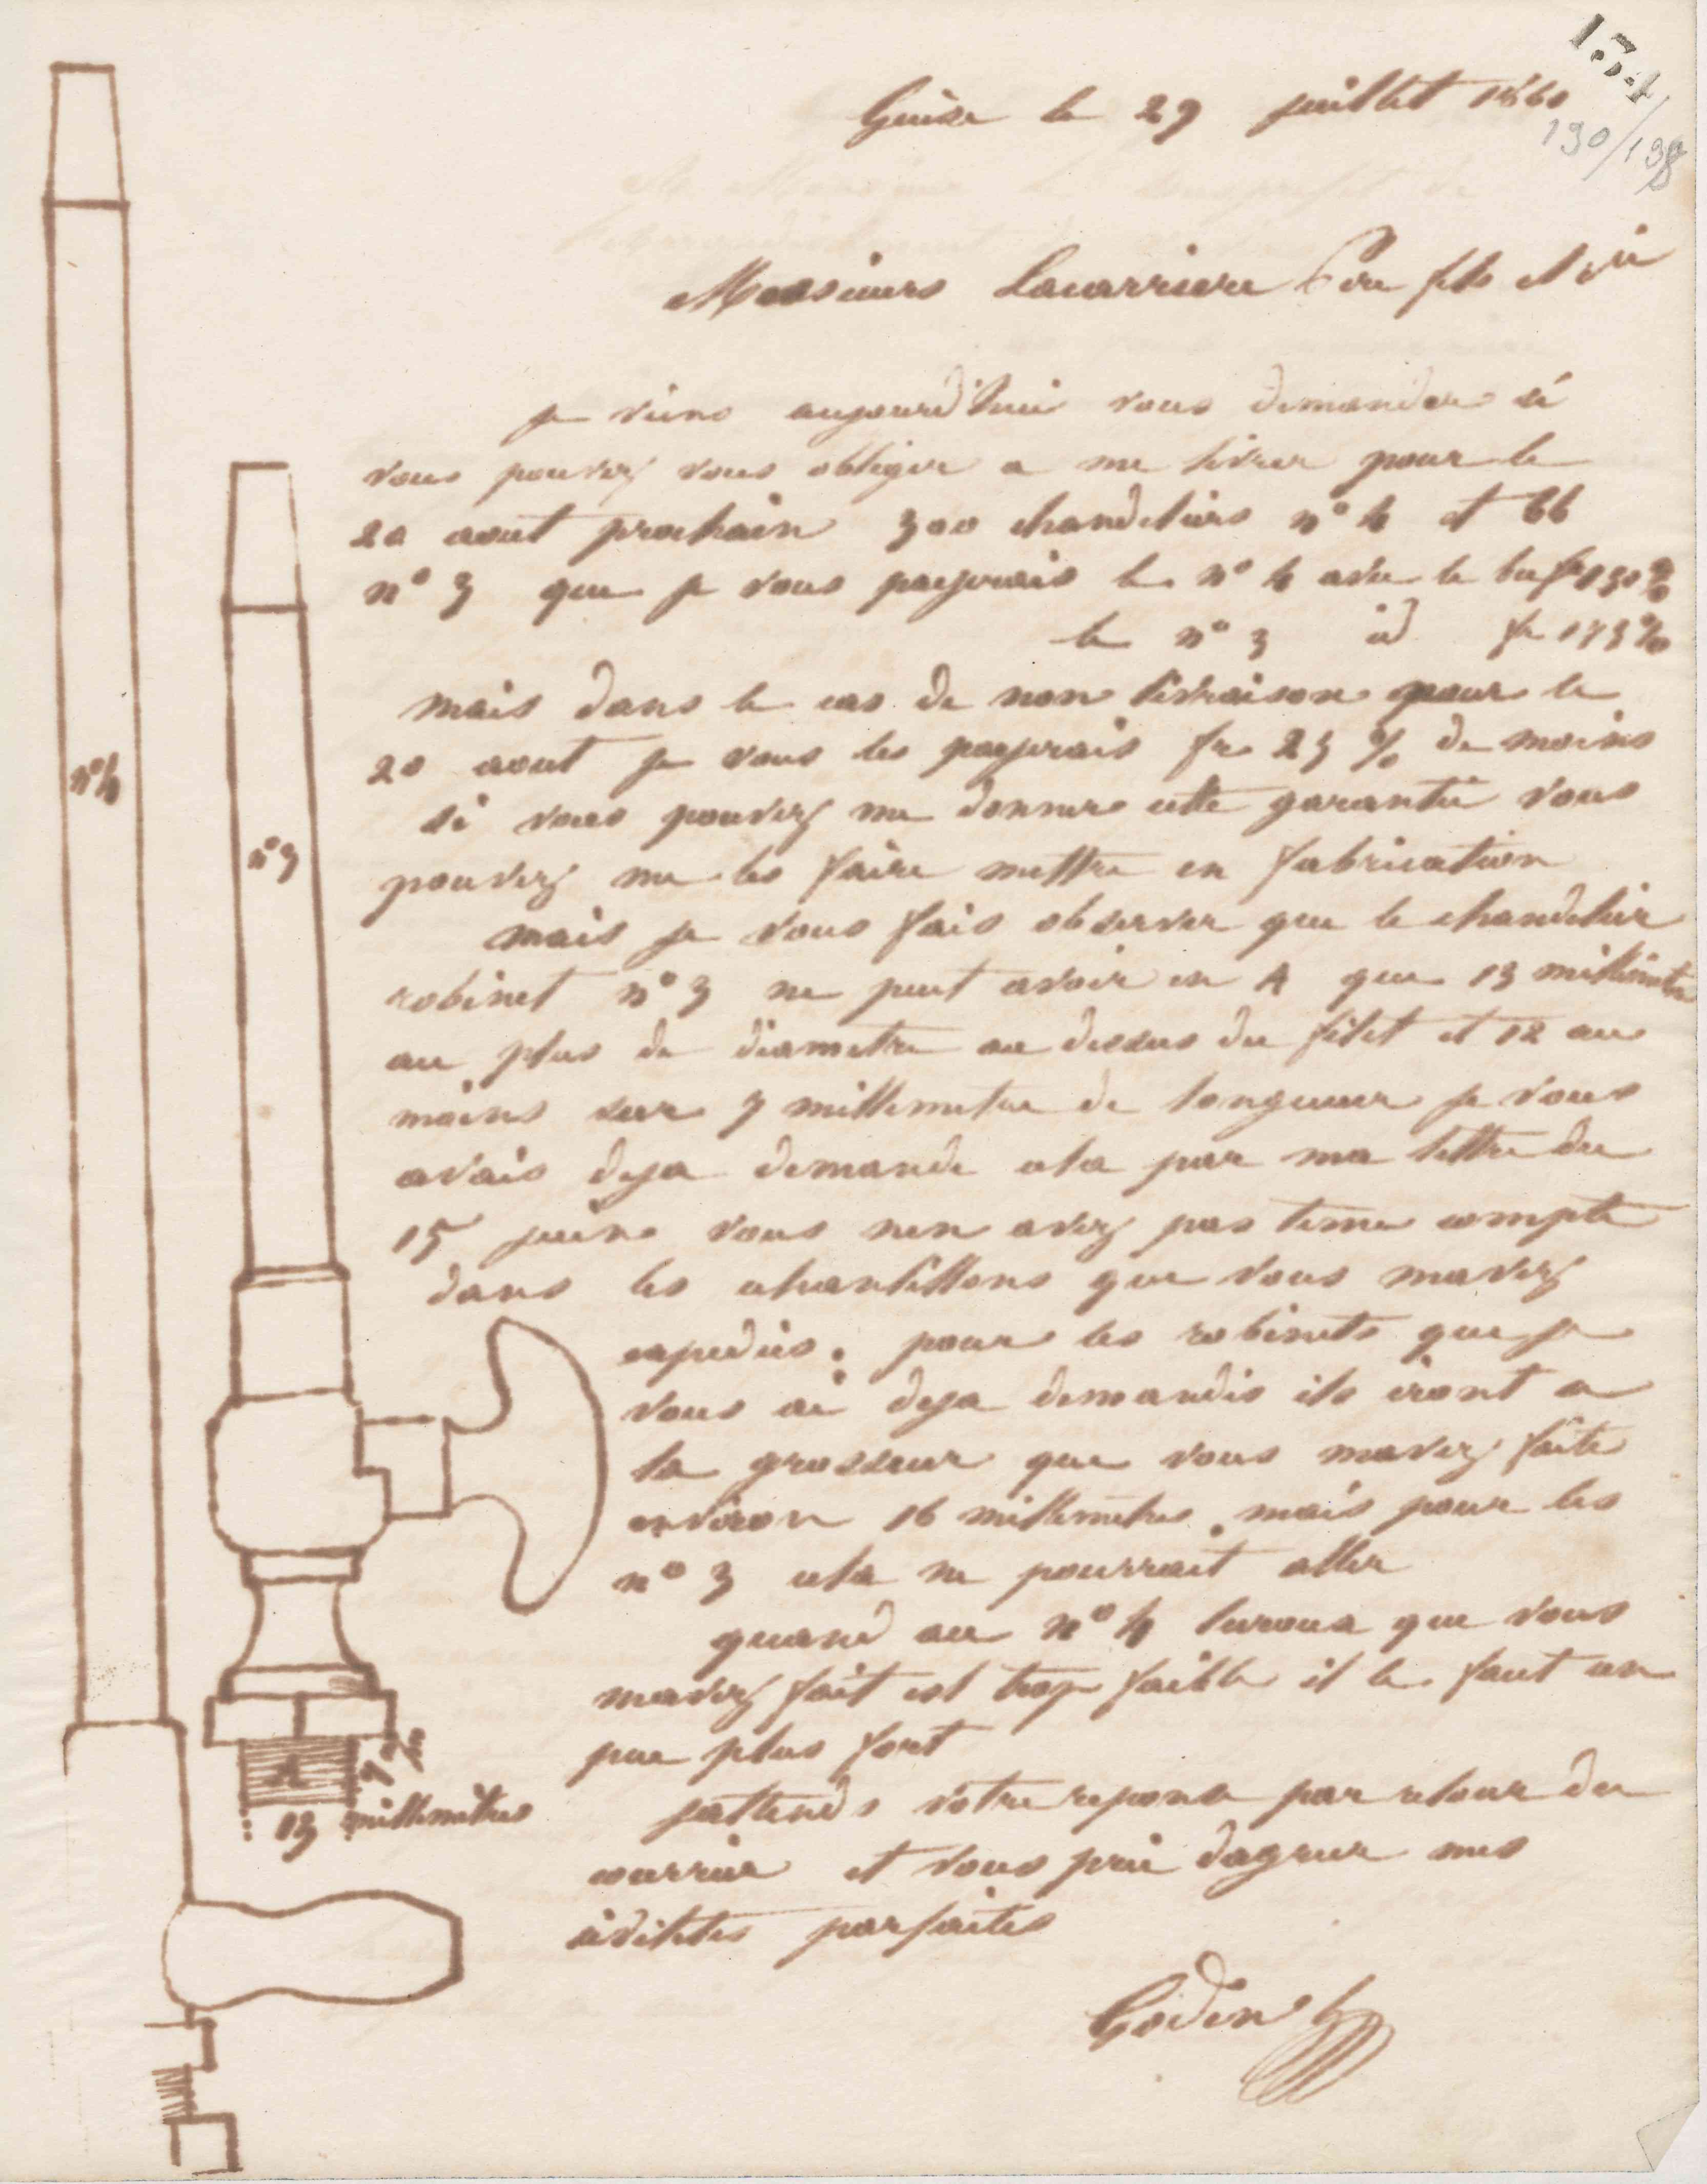 134
190/198
Guise le 29 juillet 1860
Messieurs Lacarriere Père fils et Cie
je viens aujourd'hui vous demander si
vous pouvez vous obliger a me livrer pour le
20 aout prochain 300 chandeliers n° 4 et 66
n° 3 que je vous payerais le n° 4 avec le bec fr 150 %
le n° 3 id fr 175 %
mais dans le cas de non livraison pour le
20 aout je vous les payerais fr 25 % de moins
si vous pouvez me donner cette garantie vous
pouvez me les faire mettre en fabrication
mais je vous fais observer que le chandelier
robinet n° 3 ne peut avoir en A que 13 millimetres
au plus de diametre au dessus du filet et 12 au
moins sur 7 millemetre de longueur je vous
avais deja demande cela par ma lettre du
15 juin vous nen avez pas tenu compte
dans les echantillons que vous mavez
expediés. pour les robinets que je
vous ai deja demandés ils iront a
la grosseur que vous mavez faite
environ 16 millemetres. mais pour les
n° 3 cela ne pourrait aller
quand au n° 4 que vous
mavez fait est trop faible il le faut un
peu plus fort
jattends votre reponse par retour du
courrier et vous prie dagreer mes
civilités parfaites
Godin
n° 4
n° 3
A
7 m
13 millemetres